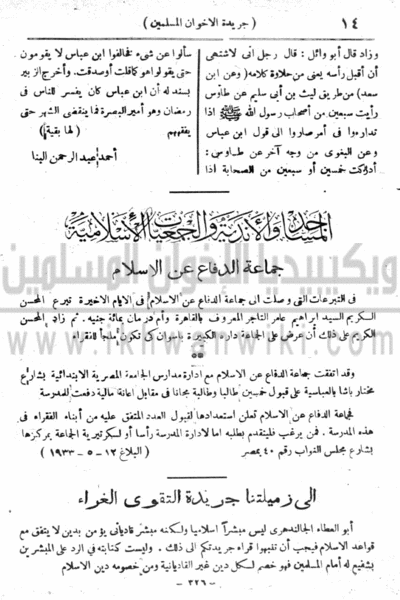 ١٤
( جريدة الاخوان المسلمين )
وزاد قال أبو وائل : قال رجل انى لاشتهى
أن أقبل رأسه يعنى من حلاوة كلامه ( وعن ابن
سعد ) من طريق ليث بن أبى سليم عن طاوس
رأيت سبعين من أصحاب رسول الله ﷺ اذا
تدارءوا فى أمر صاروا الى قول ابن عباس
وعن البغوى من وجه آخر عن طاوس :
أدركت خمسين أو سبعين من الصحابة اذا
سألوا عن شىء فخالفوا ابن عباس لا يقومون
حتى يقولوا هو كما قلت أو صدقت . وأخرج الزبير
بسند له أن ابن عباس كان يفسر للناس فى
رمضان وهو أمير البصرة فما ينقضى الشهر حتى
يفقههم ( لها بقية )
أحمد عبد الرحمن البنا
المساجد والأندية والجمعيات الإسلامية
جماعة الدفاع عن الاسلام
فى التبرعات التى وصلت الى جماعة الدفاع عن الاسلام فى الايام الاخيرة تبرع المحسن
الكريم السيد ابراهيم عامر التاجر المعروف بالقاهرة وأم درمان بمائة جنيه . ثم زاد المحسن
الكريم على ذلك أن عرض على الجماعة داره الكبيرة بأسوان كى تكون ملجأ للفقراء
وقد اتفقت جماعة الدفاع عن الاسلام مع ادارة مدارس الجامعة المصرية الابتدائية بشارع
مختار باشا بالعباسية على قبول خمسين طالبا وطالبة مجانا فى مقابل اعانة مالية دفعت للمدرسة
فجماعة الدفاع عن الاسلام تعلن استعدادها لقبول العدد المتفق عليه من أبناء الفقراء فى
هذه المدرسة . فمن يرغب فليتقدم بطلبه اما لادارة المدرسة رأسا أو لسكرتيرية الجماعة بمركزها
بشارع مجلس النواب رقم ٤٠ بمصر ( البلاغ ١٢ - ٥ - ١٩٣٣ )
الى زميلتنا جريدة التقوى الغراء
أبو العطاء الجالندهرى ليس مبشراً اسلاميا ولكنه مبشر قاديانى يؤمن بدين لا يتفق مع
قواعد الاسلام فيجب أن تنبهوا قراء جريدتكم الى ذلك . وليست كتابته فى الرد على المبشرين
بشفيع له أمام المسلمين فهو خصم لكل دين غير القاديانية ومن خصومه دين الاسلام
- ٣٢٦ -
ويكيبيديا الإخوان المسلمين
www.ikhwanwiki.com